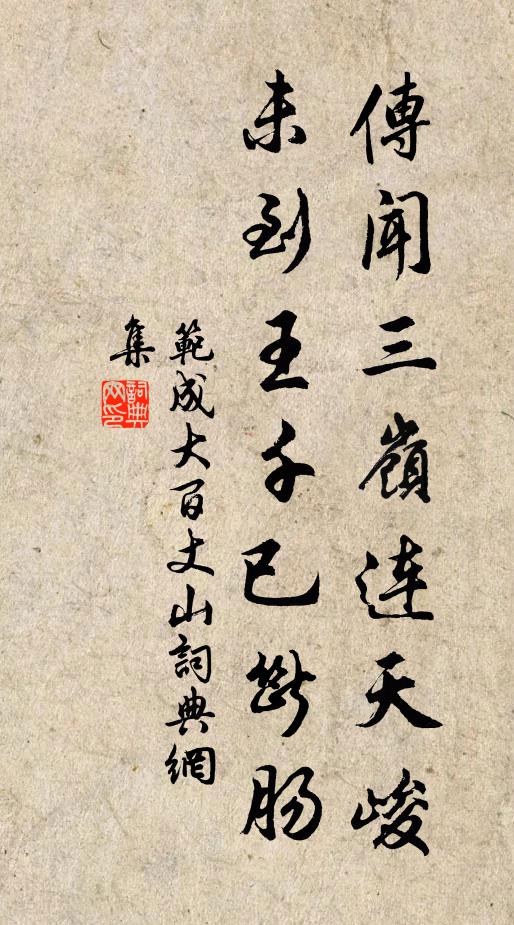 傳聞三嶺連天峻
未到王千已斷腸
範成大百丈山詞典網
集
詞典
网印